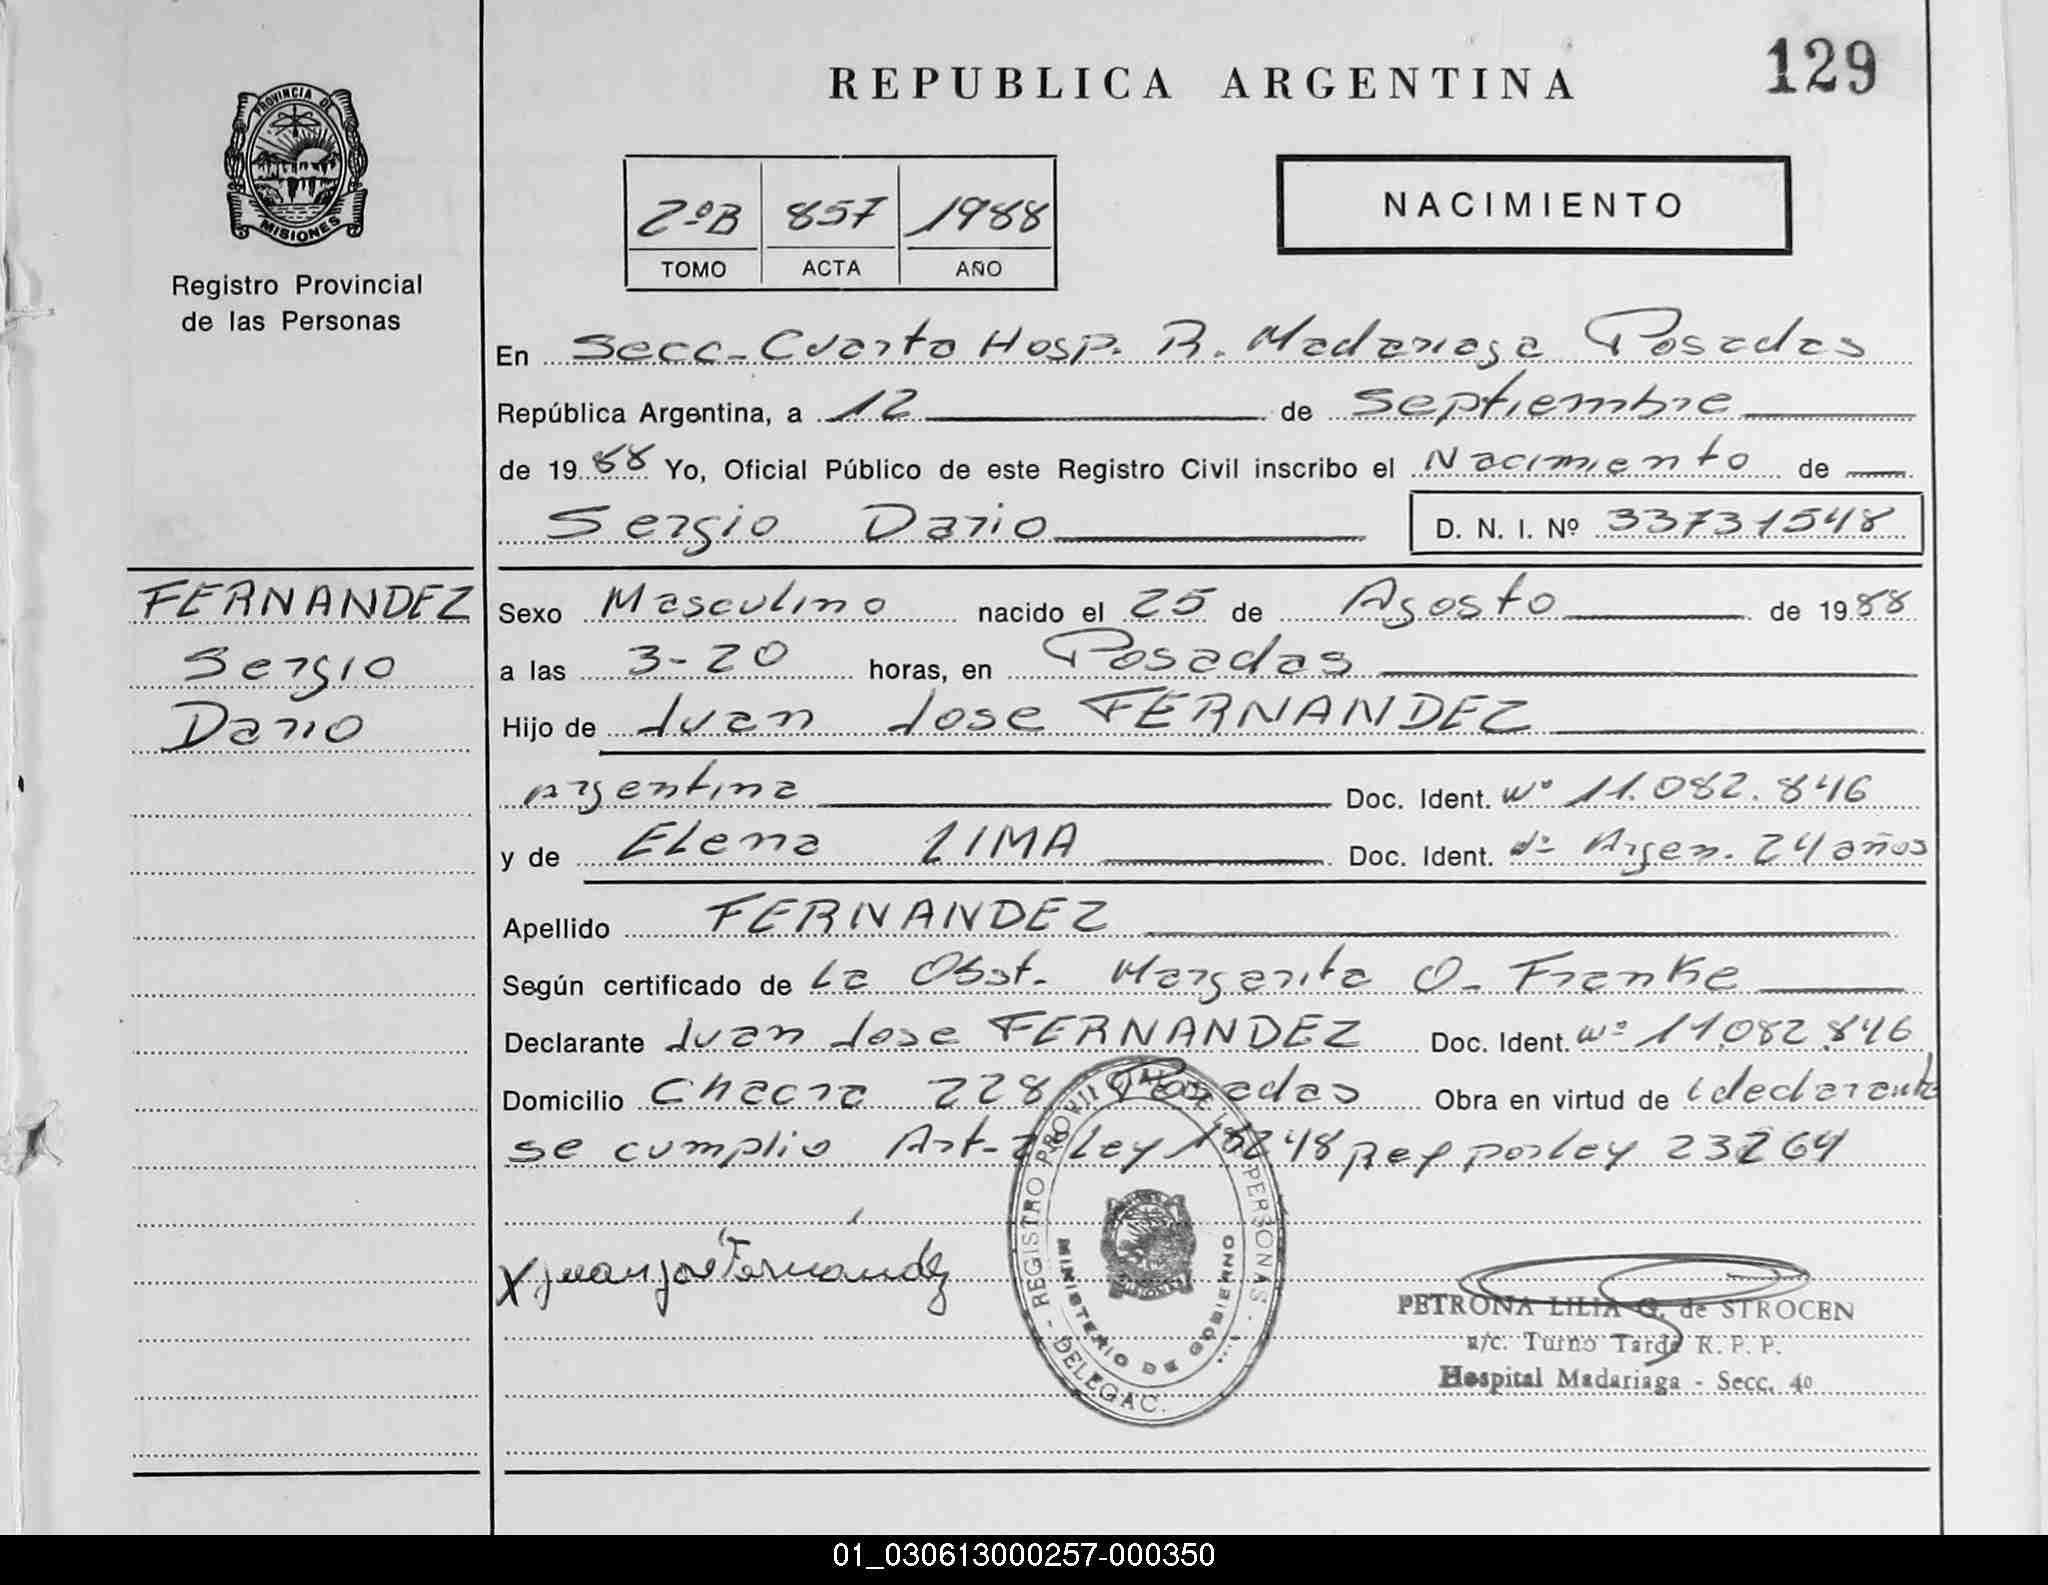 129
REPUBLICA ARGENTINA
PROVINCIA DE
MISIONES
Registro Provincial
de las Personas
2ºB 857 1988
TOMO ACTA AÑO
NACIMIENTO
En Secc-Cuarta Hosp. R. Madariaga Posadas
República Argentina, a 12 de Septiembre
de 1988 Yo, Oficial Público de este Registro Civil inscribo el Nacimiento de
Sergio Dario D. N. I. Nº 33731548
FERNANDEZ
Sergio
Dario
Sexo Masculino nacido el 25 de Agosto de 1988
a las 3-20 horas, en Posadas
Hijo de Juan Jose FERNANDEZ
Argentina Doc. Ident. Nº 11.082.846
y de Elena LIMA Doc. Ident. Argen. 24 años
Apellido FERNANDEZ
Según certificado de La Obst. Margarita O. Franke
Declarante Juan Jose FERNANDEZ Doc. Ident. Nº 11.082.846
Domicilio Chacra 228 Posadas Obra en virtud de declarante
se cumplio Art- Ley 18248 Ref por ley 23264
X Juan José Fernández
REGISTRO PROVINCIAL DE LAS PERSONAS - DELEGAC.
MINISTERIO DE GOBIERNO
PETRONA LILIA G. de STROCEN
a/c. Turno Tarde R. P. P.
Hospital Madariaga - Secc. 4o
01_030613000257-000350